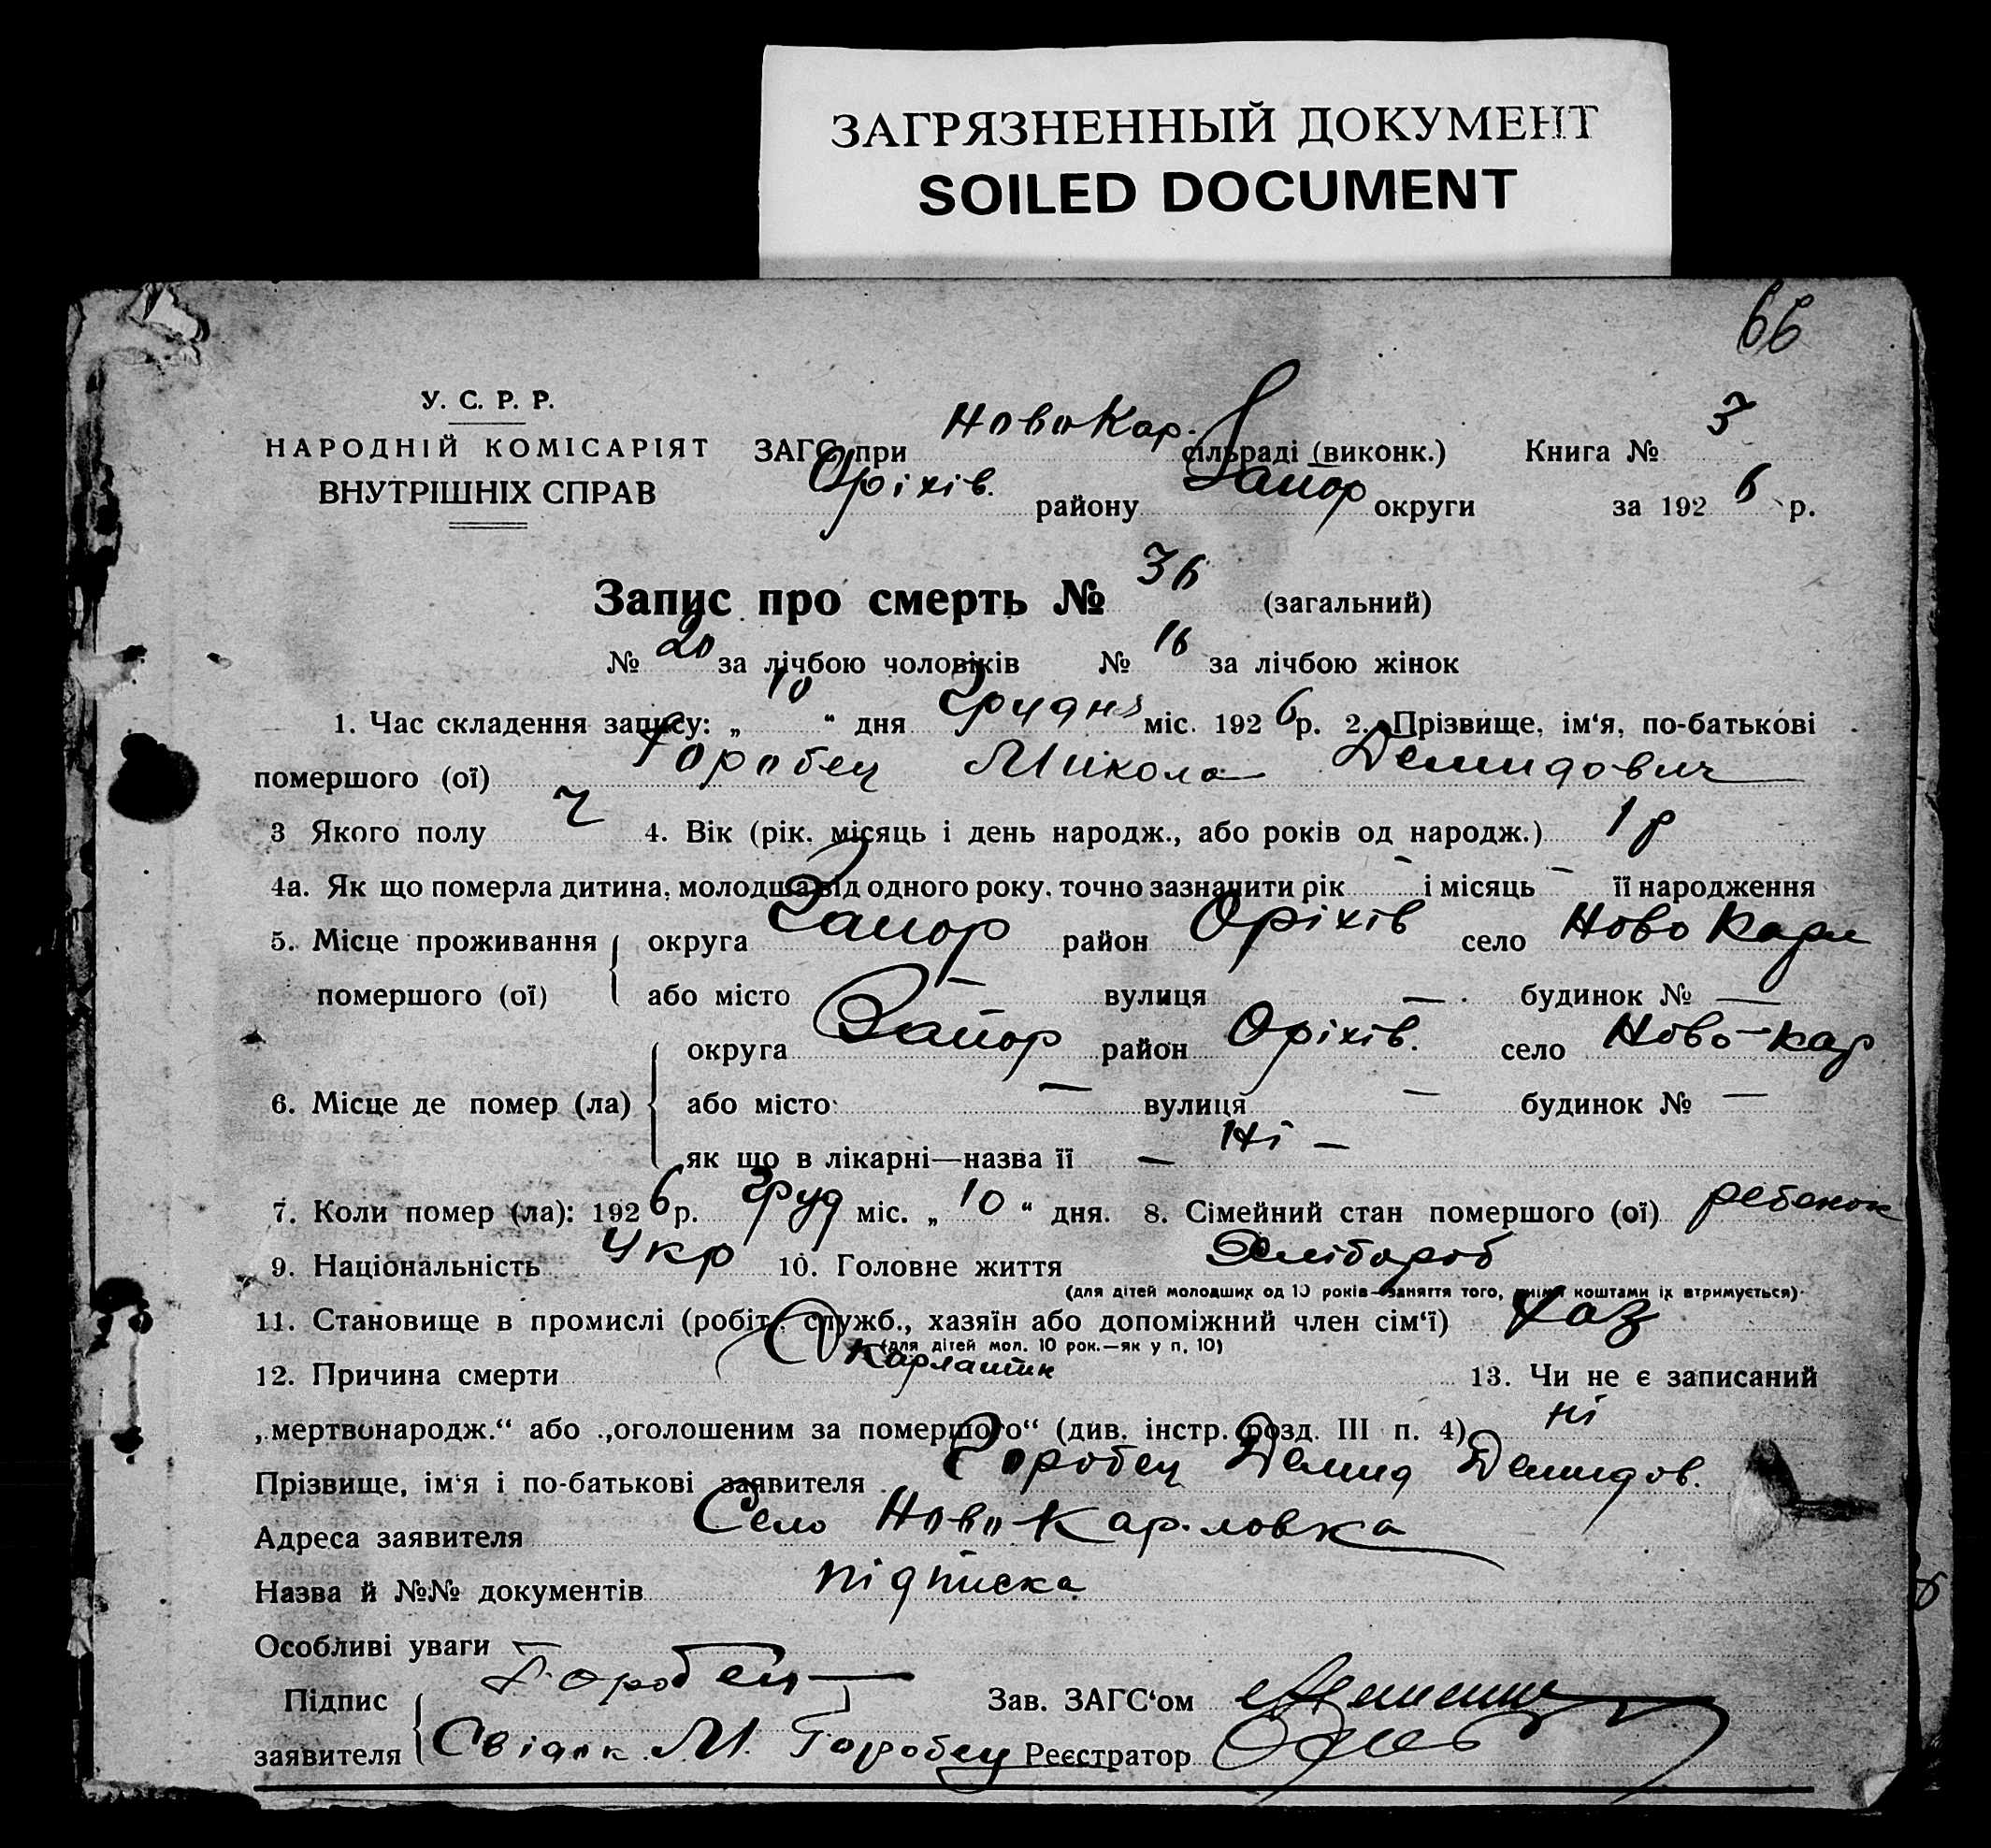 ЗАГРЯЗНЕННЫЙ ДОКУМЕНТ
SOILED DOCUMENT
66
У. С. Р. Р.
НАРОДНІЙ КОМІСАРІЯТ
ВНУТРІШНІХ СПРАВ
ЗАГС при НовоКар. сільраді (виконк.) Книга № 3
Оріхів. району Запор округи за 1926 р.
Запис про смерть № 36 (загальний)
№ 20 за лічбою чоловіків № 16 за лічбою жінок
1. Час складення запису: „ 10 “ дня Грудня міс. 1926 р. 2. Прізвище, ім‘я, по-батькові
помершого (ої) Горобец Микола Демидович
3 Якого полу Ч 4. Вік (рік, місяць і день народж., або років од народж.) 1 р
4а. Як що померла дитина, молодша від одного року, точно зазначити рік – і місяць – її народження
5. Місце проживання округа Запор район Оріхів село Ново Карл
помершого (ої) або місто — вулиця — будинок № —
округа Запор район Оріхів. село Ново-Кар
6. Місце де помер (ла) або місто — вулиця — будинок № —
як що в лікарні—назва її — Ні —
7. Коли помер (ла): 1926 р. Груд міс. „ 10 “ дня. 8. Сімейний стан помершого (ої) ребенок
9. Національність Укр 10. Головне життя Хлібороб
(для дітей молодших од 10 років—заняття того, чиїми коштами їх втримується)
11. Становище в промислі (робіт., служб., хазяїн або допоміжний член сім‘ї) Хаз
(для дітей мол. 10 рок.—як у п. 10)
12. Причина смерти 13. Чи не є записаний
„мертвонародж.“ або „оголошеним за помершого“ (див. інстр. розд. III п. 4) ні
Прізвище, ім‘я і по-батькові заявителя Горобец Демид Демидов.
Адреса заявителя Село НовоКарловка
Назва й №№ документів підписка
Особливі уваги –
Підпис Горобец Зав. ЗАГС‘ом
заявителя Свідок М. Горобец Реєстратор